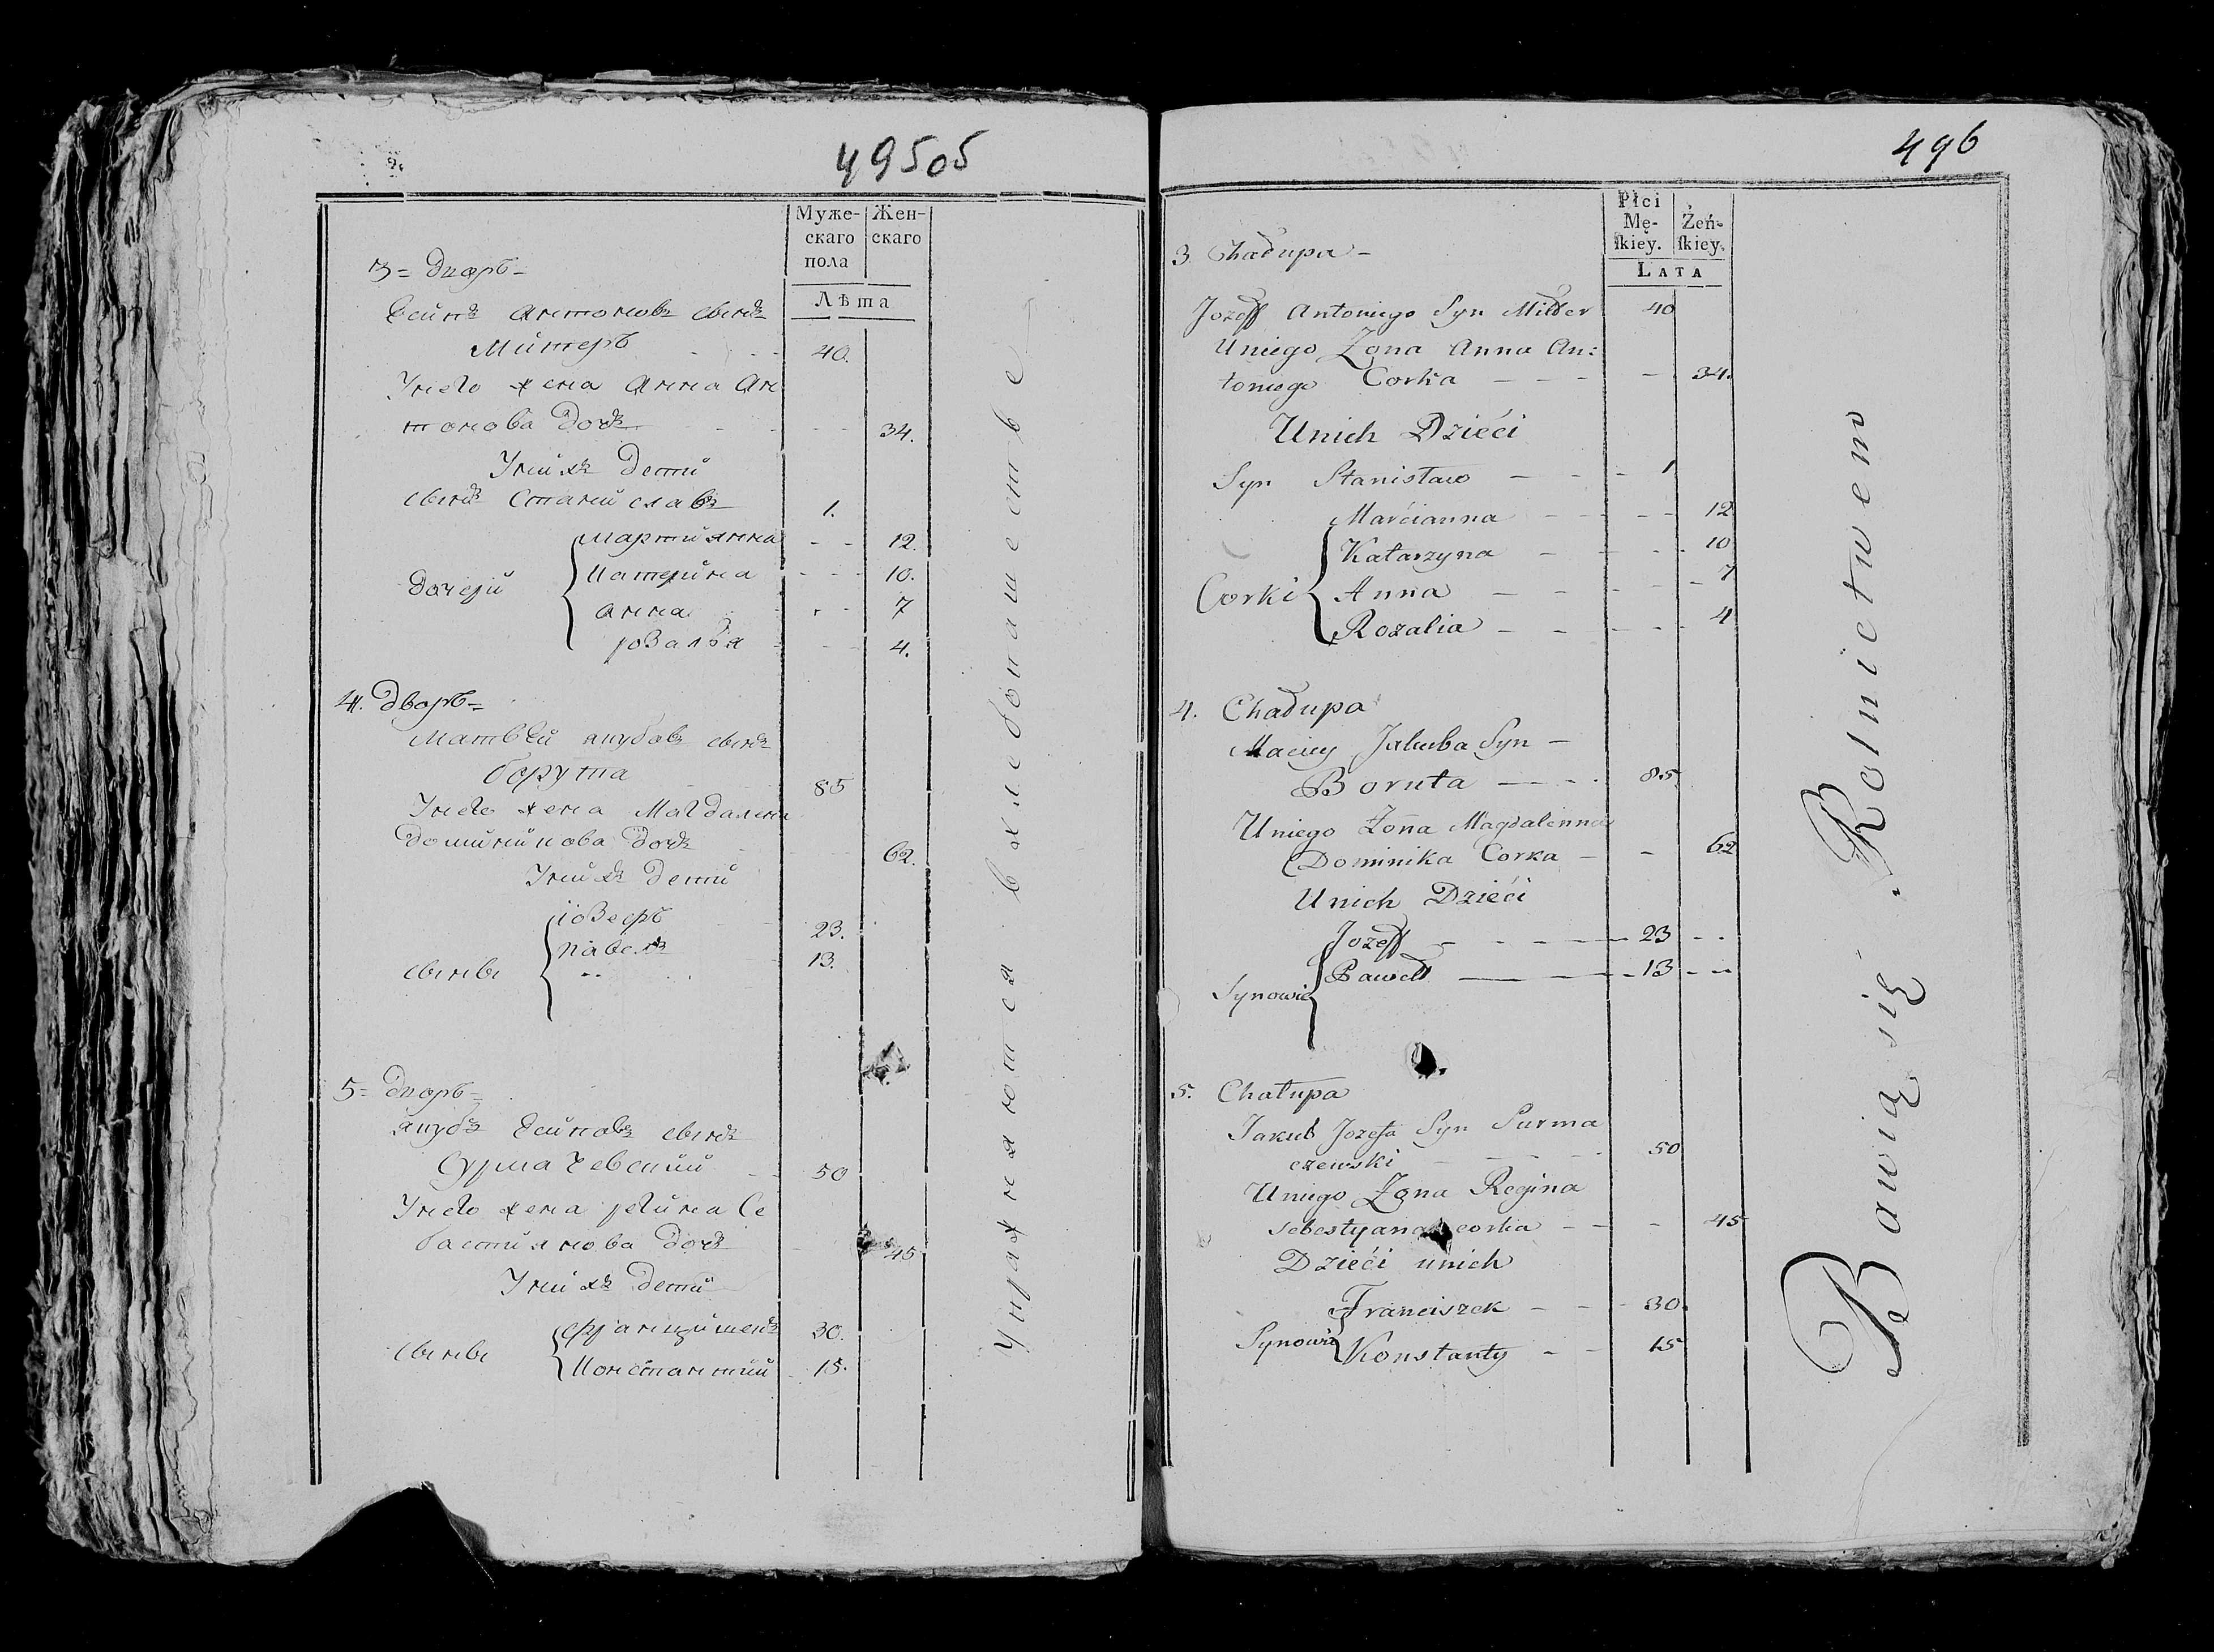 495 05
Муже-
скаго
пола
Жен-
скаго
Лѣта
3 = дворъ =
антоновъ сынъ
40.
Унего жена Анна Ан
тонова дочь 34.
Унихъ дети
сынъ Станиславъ 1.
Дочери
Мартиянна 12.
Катерина 10.
анна 7
розалья 4.
4. дворъ =
Матвей якубовъ сынъ
борута 85
Унего жена Магдалена
доминикова дочь 62.
Унихъ дети
сыны
іозефъ 23.
павелъ 13.
5 = дворъ =
якубъ сынъ
Сурмачевский 50
Унего жена регина Се
бастиянова дочь 45
Унихъ дети
сыны
францишекъ 30.
Константий 15.
Упражняются в хлебопашестве
496
Płci
Mę-
ſkiey.
Żeń-
ſkiey.
LATA
3. Chałupa -
Jozeff Antoniego Syn Milder 40
Uniego Zona Anna An:
toniego Corka 34.
Unich Dzieći
Syn Stanisław 1
Córki
Marćianna 12
Katarzyna 10
Anna 7
Rozalia 4
4. Chałupa
Maciey Jakuba Syn -
Boruta 85
Uniego Żona Magdalenna
Dominika Corka 62
Unich Dzieći
Synowie
Jozeff 23
Paweł 13
5. Chałupa
Jakub Jozefa Syn Surma
czewski 50
Uniego Zona Regina
Sebestyana corka 45
Dzieći unich
Synowie
Franciszek 30.
Konstanty 15
Bawią się Rolnictwem